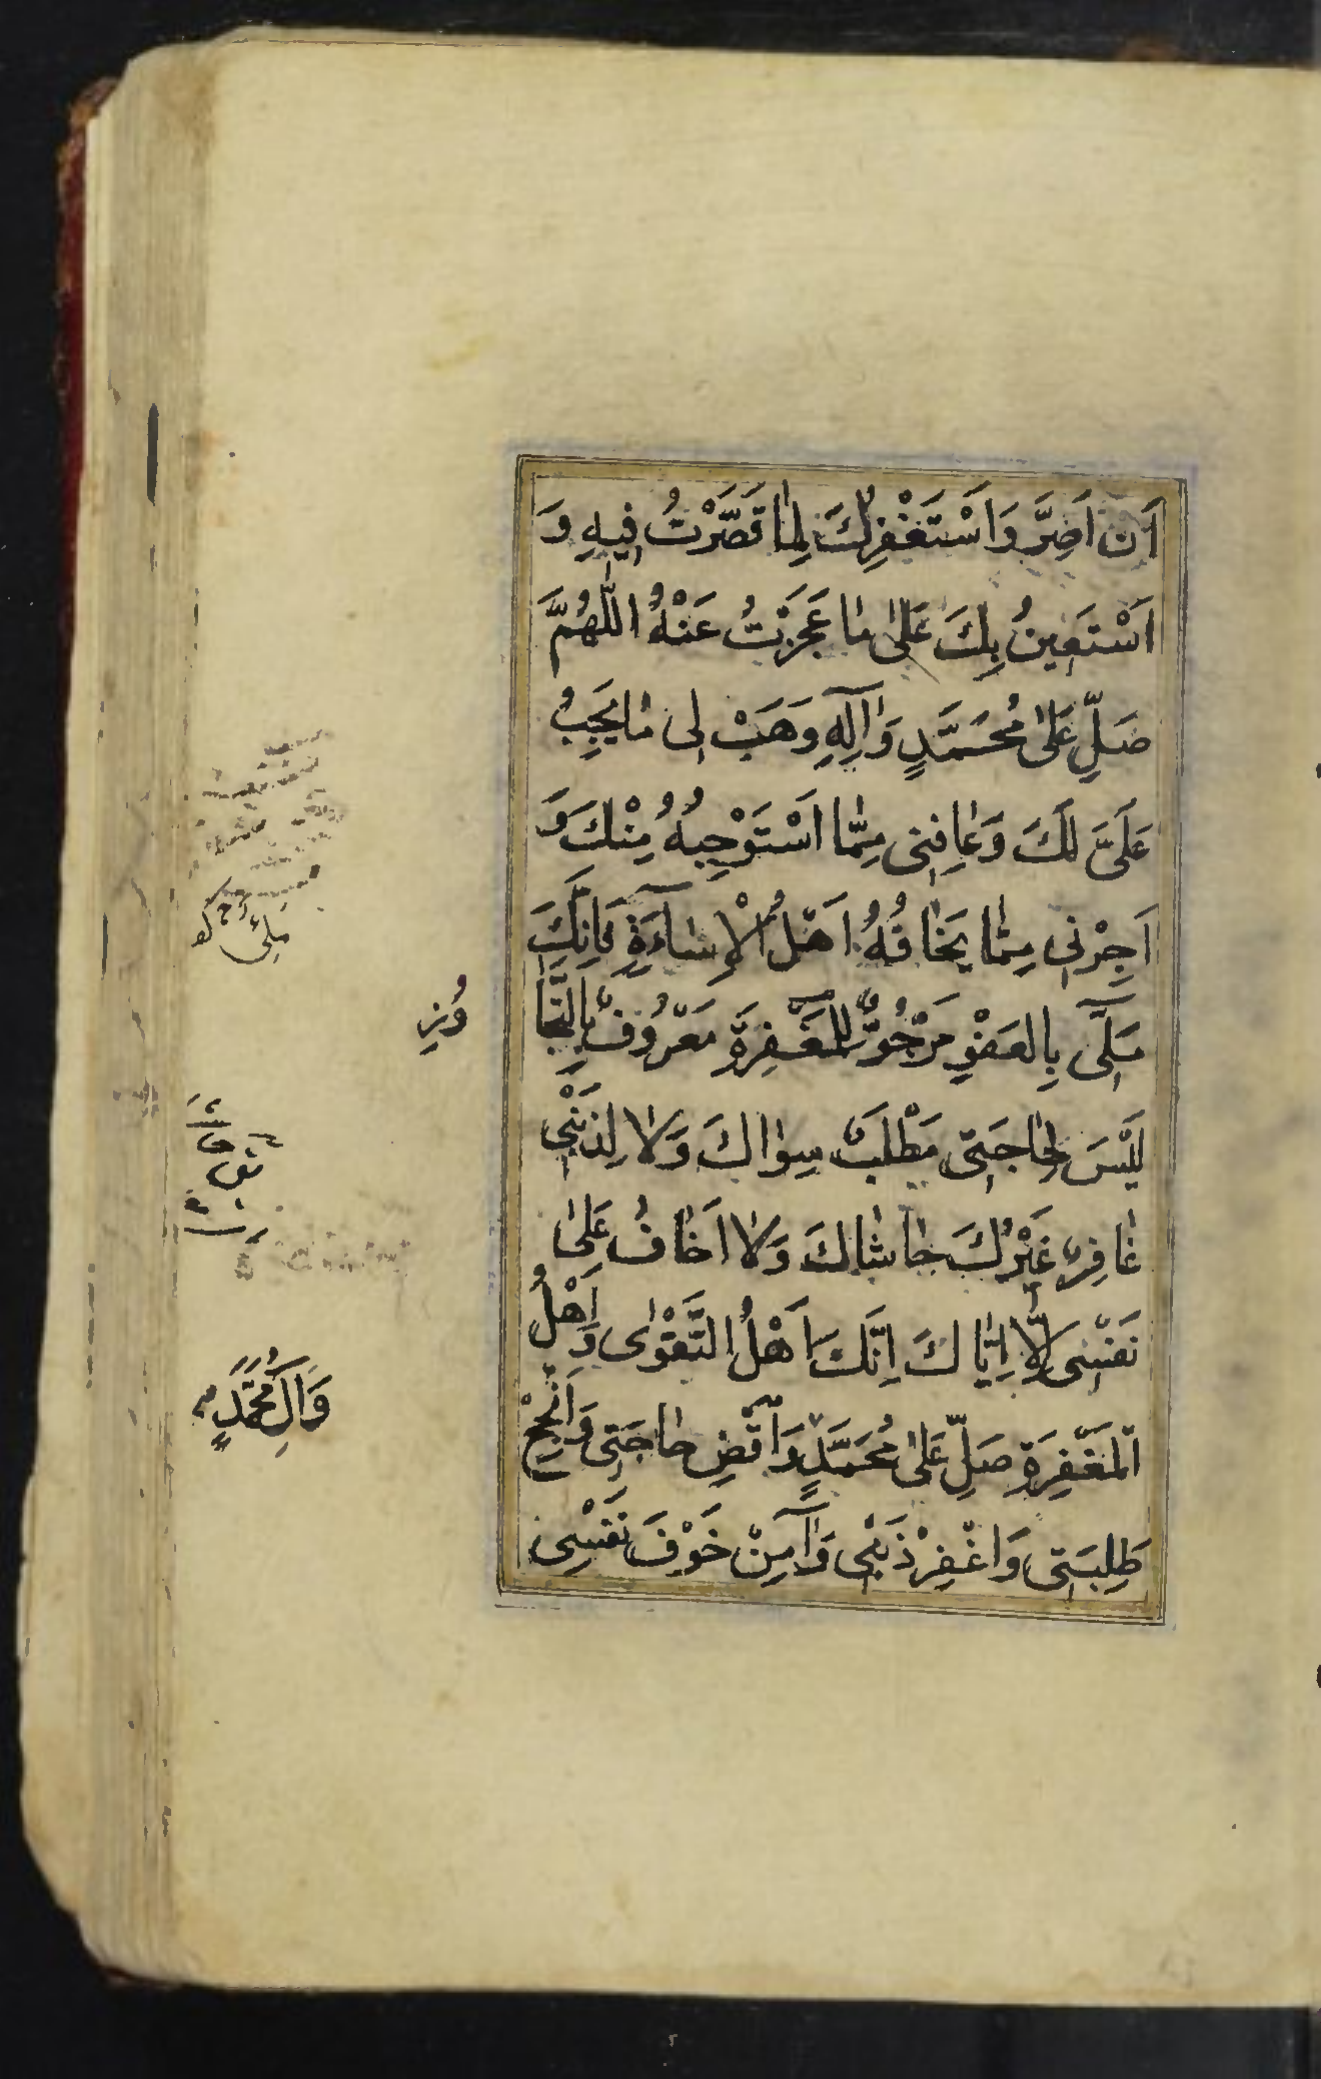 اَنْ اَضِرَّ وَاَسْتَغْفِرُكَ لِمٰا قَصَّرْتُ فِيهِ وَ
اَسْتَعِينُ بِكَ عَلىٰ مٰا عَجَزْتُ عَنْهُ اللّٰهُمَّ
صَلِّ عَلىٰ مُحَمَّدٍ وَآلِهِ وَهَبْ لِى مٰا يَجِبُ
عَلَىَّ لَكَ وَعٰافِنِى مِمّٰا اَسْتَوْجِبُهُ مِنْكَ وَ
اَجِرْنِى مِمّٰا يَخٰافُهُ اَهْلُ الْاِسٰاءَةِ فَاِنَّكَ
مَلِىٌّ بِالعَفْوِ مَرْجُوٌّ لِلْمَغْفِرَةِ مَعْرُوفٌ بِالتَّجٰا
وُزِ
لَيْسَ لِحٰاجَتِى مَطْلَبٌ سِوٰاكَ وَلاٰ لِذَنْبِى
غٰافِرٌ غَيْرُكَ حٰاشٰاكَ وَلاٰ اَخٰافُ عَلىٰ
نَفْسِى اِلاّٰ اِيّٰاكَ اِنَّكَ اَهْلُ التَّقْوٰى وَاَهْلُ
الْمَغْفِرَةِ صَلِّ عَلىٰ مُحَمَّدٍ وَاقْضِ حٰاجَتِى وَاَنْجِحْ
وَآلِ مُحَمَّدٍ
طَلِبَتِى وَاغْفِرْ ذَنْبِى وَآمِنْ خَوْفَ نَفْسِى